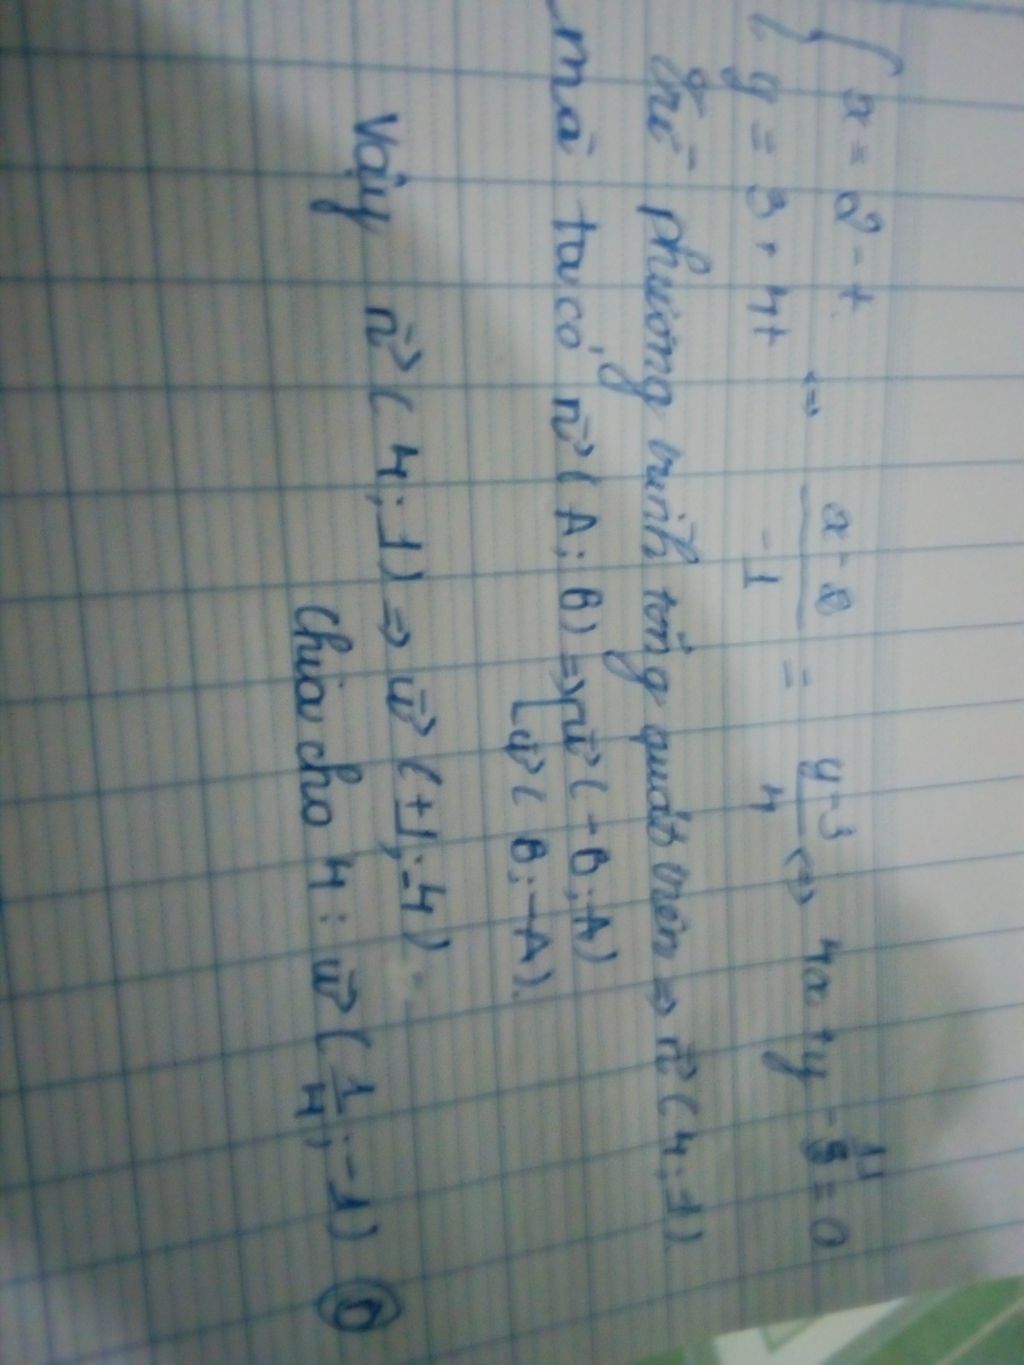 { x = 2 - t
y = 3 + 4t ⇔ x - 2 / -1 = y - 3 / 4 ⇔ 4x + y - 11 = 0
Từ phương trình tổng quát trên ⇒ n⃗ ( 4 ; 1 ).
mà ta có, n⃗ ( A ; B ) ⇒ [ u⃗ ( -B ; A )
u⃗ ( B ; -A ).
Vậy n⃗ ( 4 ; 1 ) ⇒ u⃗ ( +1 ; -4 )
Chia cho 4 : u⃗ ( 1/4 ; -1 ) D